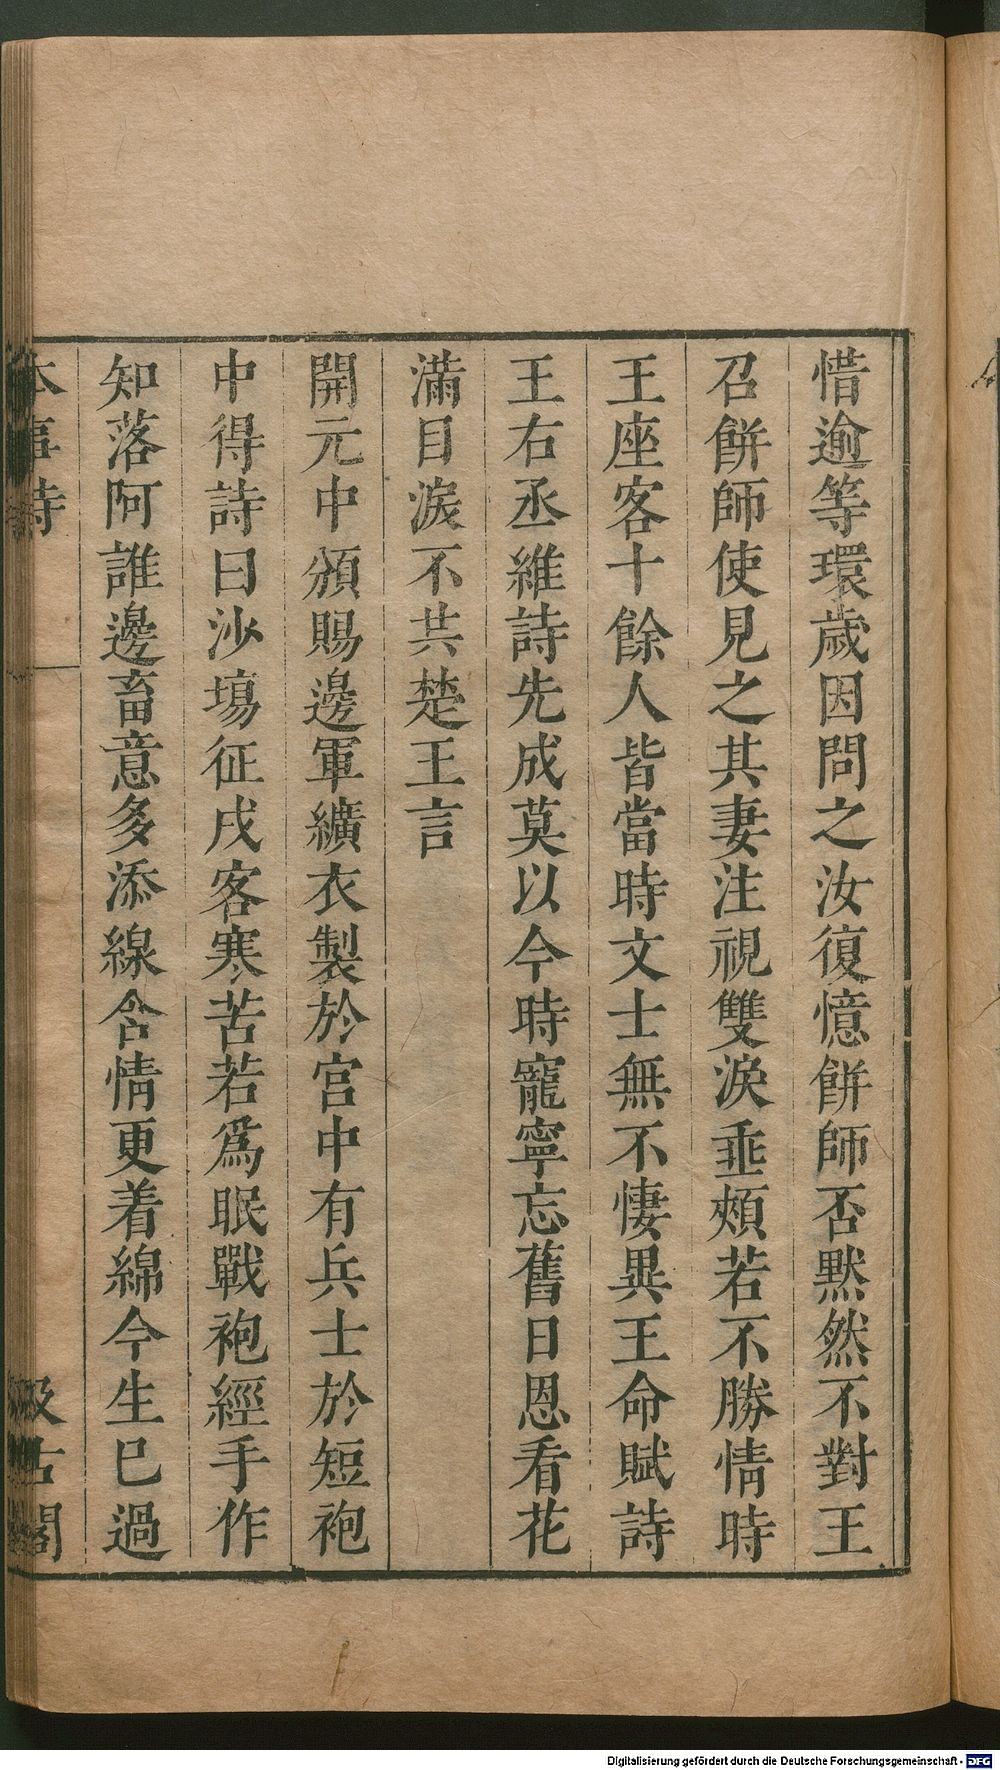 惜逾等環歲因問之汝復憶餅師否默然不對王
召餅師使見之其妻注視雙淚垂頰若不勝情時
王座客十餘人皆當時文士無不悽異王命賦詩
王右丞維詩先成莫以今時寵寧忘舊日恩看花
滿目淚不共楚王言
開元中頒賜邊軍纊衣製於宮中有兵士於短袍
中得詩曰沙塲征戍客寒苦若爲眠戰袍經手作
知落阿誰邊畜意多添線含情更着綿今生已過
本事詩
汲古閣
Digitalisierung gefördert durch die Deutsche Forschungsgemeinschaft - DFG